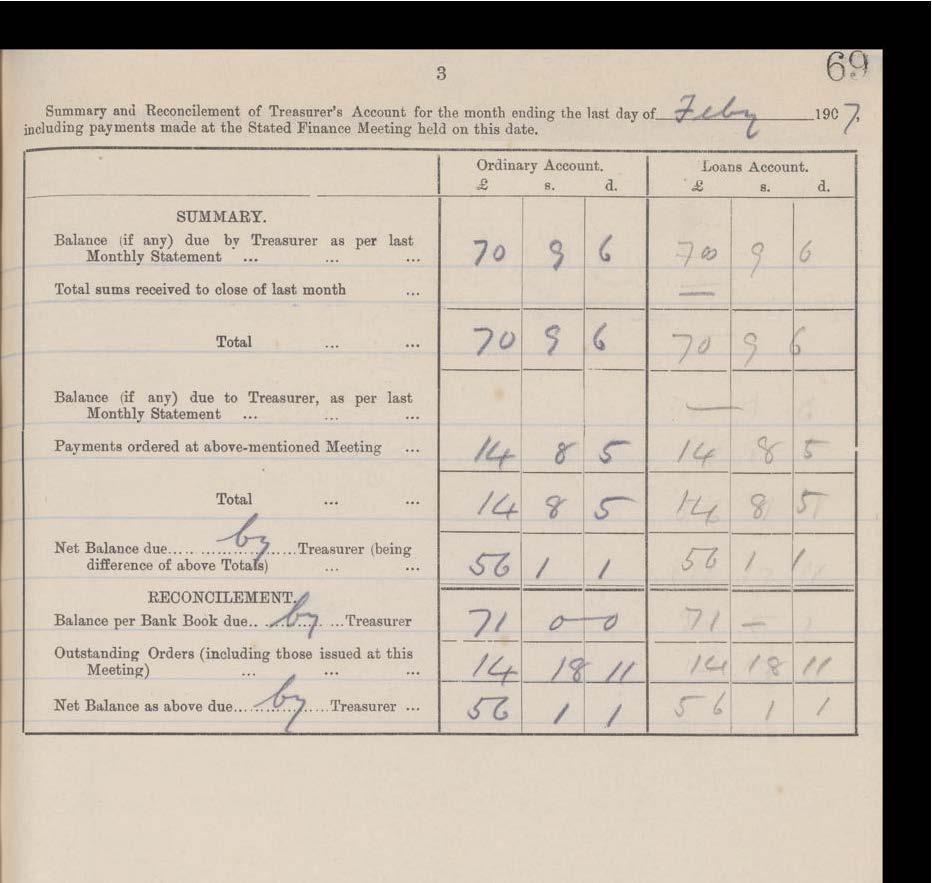 69
3
Summary and Reconcilement of Treasurer's Account for the month ending the last day of Feby 1907,
including payments made at the Stated Finance Meeting held on this date.
Ordinary Account. Loans Account.
£ s. d. £ s. d.
SUMMARY.
Balance (if any) due by Treasurer as per last
Monthly Statement ... ... ... 70 9 6 70 9 6
Total sums received to close of last month ... —
Total ... ... 70 9 6 70 9 6
Balance (if any) due to Treasurer, as per last
Monthly Statement ... ... ... —
Payments ordered at above-mentioned Meeting ... 14 8 5 14 8 5
Total ... ... 14 8 5 14 8 5
Net Balance due.. by ..Treasurer (being
difference of above Totals) ... ... 56 1 1 56 1 1
RECONCILEMENT.
Balance per Bank Book due.. by ...Treasurer 71 0—0 71 —
Outstanding Orders (including those issued at this
Meeting) ... ... ... 14 18 11 14 18 11
Net Balance as above due... by ....Treasurer ... 56 1 1 56 1 1